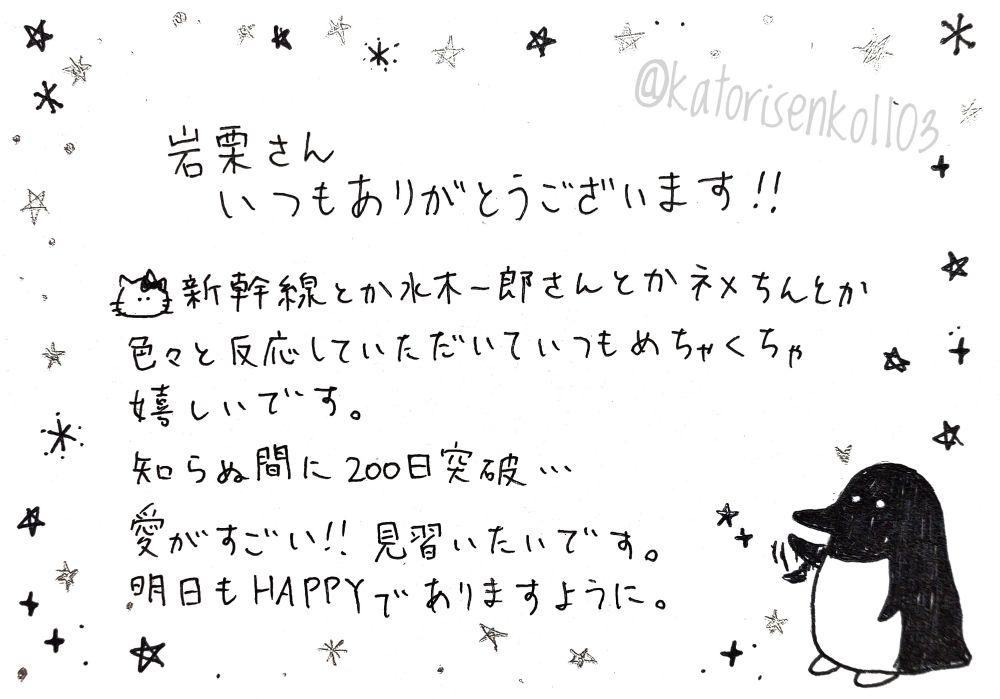 @katorisenko1103
岩栗さん
いつもありがとうございます!!
新幹線とか水木一郎さんとかネメちんとか
色々と反応していただいていつもめちゃくちゃ
嬉しいです。
知らぬ間に200日突破…
愛がすごい!!見習いたいです。
明日もHAPPYでありますように。